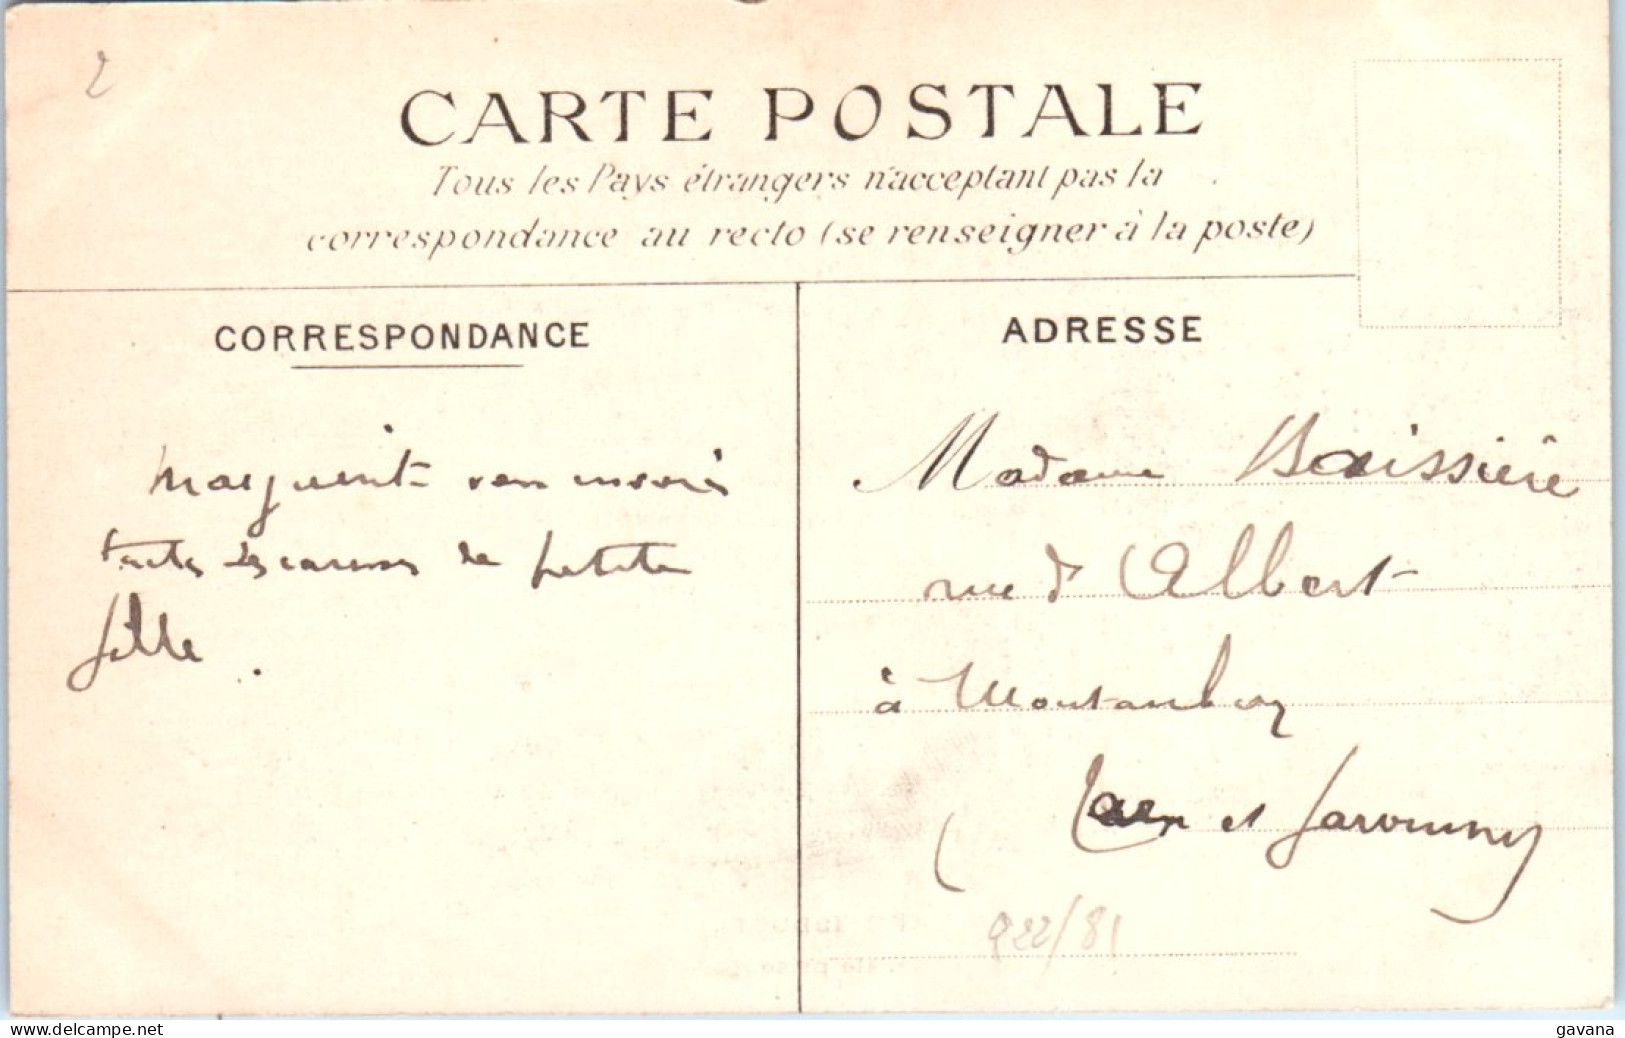 2
CARTE POSTALE
Tous les Pays étrangers n'acceptant pas la
correspondance au recto (se renseigner à la poste)
CORRESPONDANCE
ADRESSE
Marguerite vous envoie
toutes les caresses de petite
fille.
Madame Boissière
rue d'Albert
à Montauban
(Tarn et Garonne)
922/81
www.delcampe.net
gavana